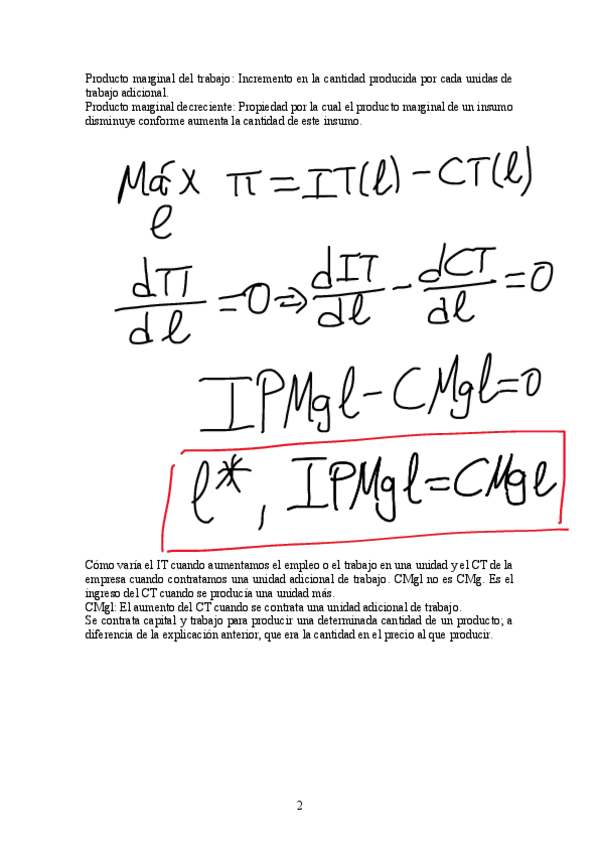 Producto marginal del trabajo: Incremento en la cantidad producida por cada unidas de
trabajo adicional.
Producto marginal decreciente: Propiedad por la cual el producto marginal de un insumo
disminuye conforme aumenta la cantidad de este insumo.
Máx π = IT(l) - CT(l)
l
dπ/dl = 0 ⇒ dIT/dl - dCT/dl = 0
IPMgl - CMgl = 0
l*, IPMgl = CMgl
Cómo varía el IT cuando aumentamos el empleo o el trabajo en una unidad y el CT de la
empresa cuando contratamos una unidad adicional de trabajo. CMgl no es CMg. Es el
ingreso del CT cuando se producía una unidad más.
CMgl: El aumento del CT cuando se contrata una unidad adicional de trabajo.
Se contrata capital y trabajo para producir una determinada cantidad de un producto; a
diferencia de la explicación anterior, que era la cantidad en el precio al que producir.
2